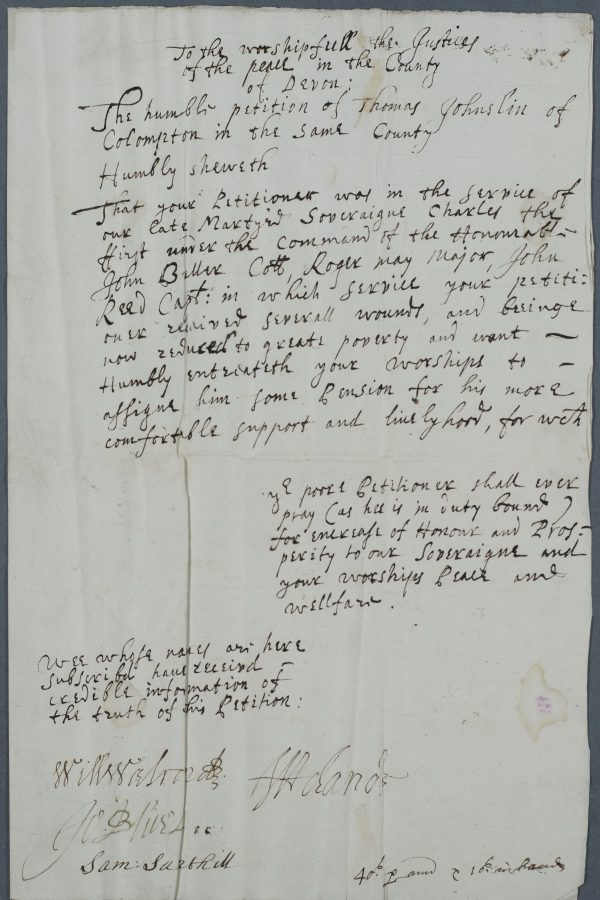 To the worshipfull the Justices
of the peace in the County
of Devon:
The humble petition of Thomas Johnslin of
Colompton in the Same County
Humbly sheweth
That your Petitioner was in the service of
our late Martyrd Soveraigne Charles the
ffirst under the Command of the Honourable
John Buller Coll, Roger may Major, John
Reed Capt: in which service your petiti:
oner received severall wounds, and beeinge
now reduced to greate poverty and want
Humbly entreateth your worships to
assigne him some Pension for his more
comfortable support and livelyhood, for wch
ye poore Petitioner shall ever
pray (as hee is in duty bound)
for encrease of Honour and Pros-
perity to our Soveraigne and
your worships Peace and
wellfare.
Wee whose names are here
subscribd have receivd
credible information of
the truth of his Petition:
Will Walrond
Sam: Sarthill
40s p ann in hand